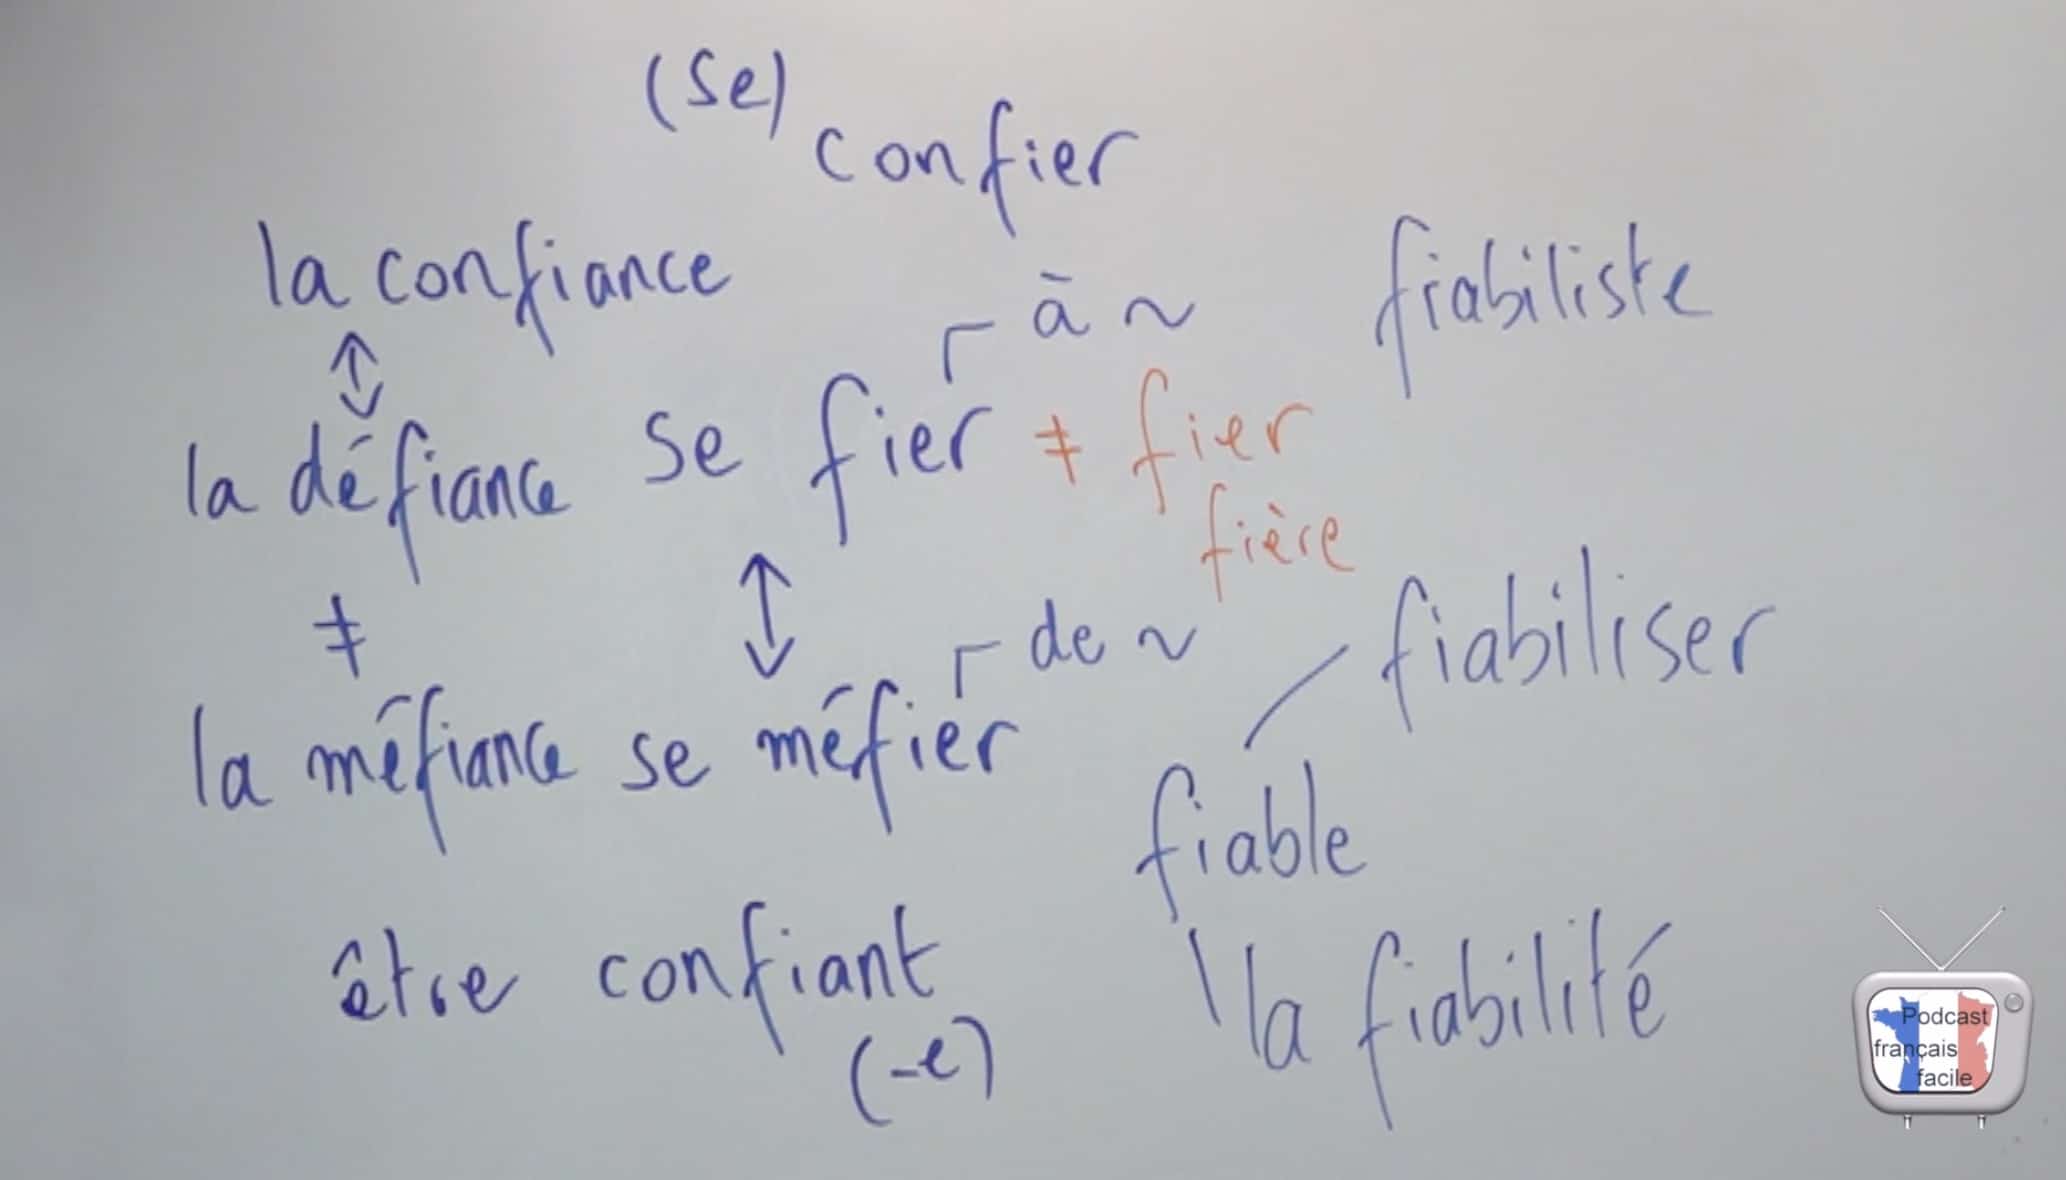 (se)
confier
la confiance
à ~
fiabiliste
↕
la défiance se fier ≠ fier
fière
≠
↕
de ~
fiabiliser
la méfiance se méfier
fiable
être confiant
(-e)
la fiabilité
Podcast
français
facile